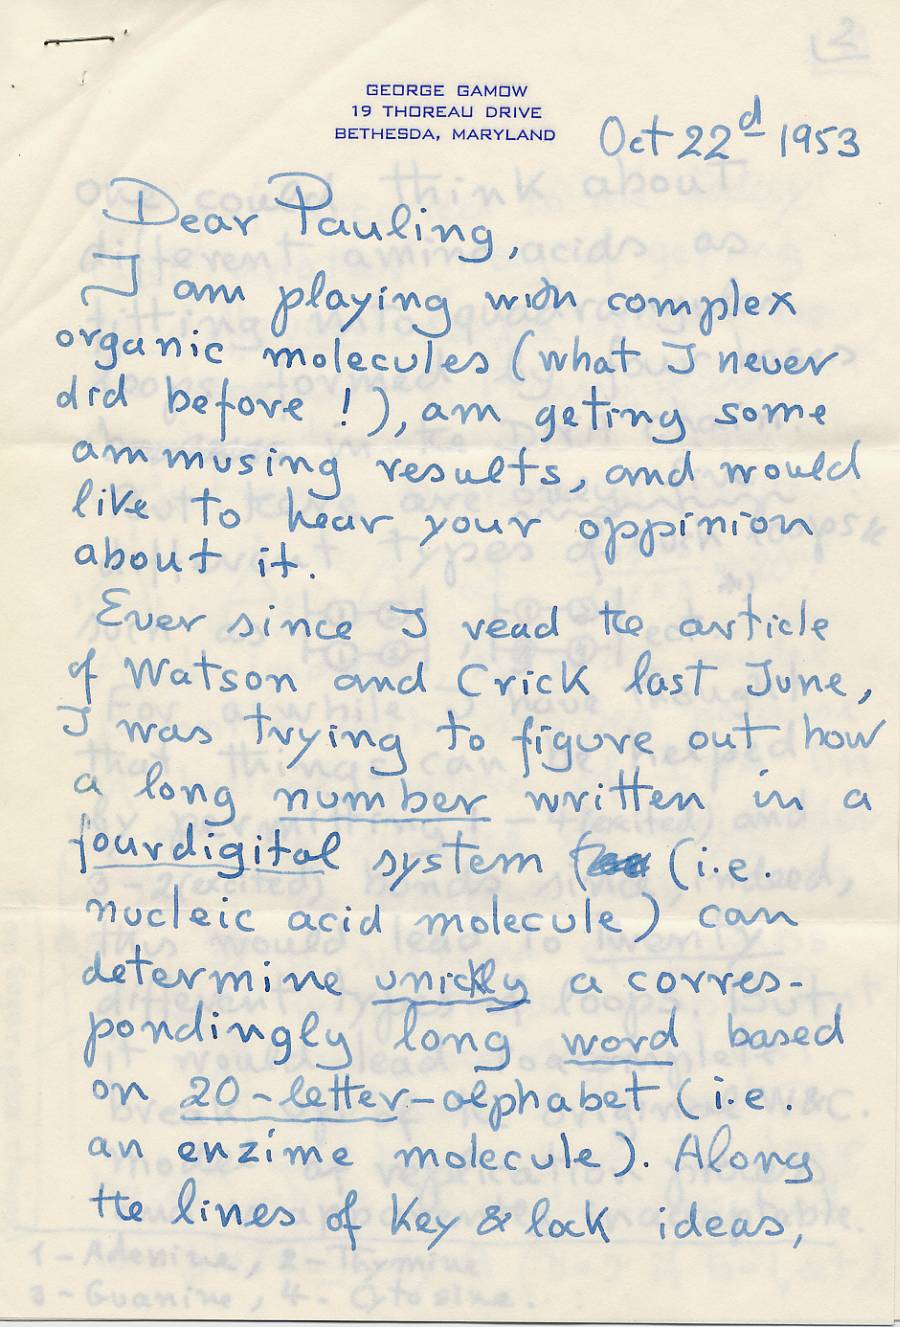 GEORGE GAMOW
19 THOREAU DRIVE
BETHESDA, MARYLAND
Oct 22d 1953
Dear Pauling,
I am playing with complex
organic molecules (what I never
did before!), am geting some
ammusing results, and would
like to hear your oppinion
about it.
Ever since I read the article
of Watson and Crick last June,
I was trying to figure out how
a long number written in a
fourdigital system (i.e.
nucleic acid molecule) can
determine unickly a corres-
pondingly long word based
on 20-letter-alphabet (i.e.
an enzime molecule). Along
the lines of key & lock ideas,
1 - Adenine, 2 - Thymine
3 - Guanine, 4 - Cytosine.